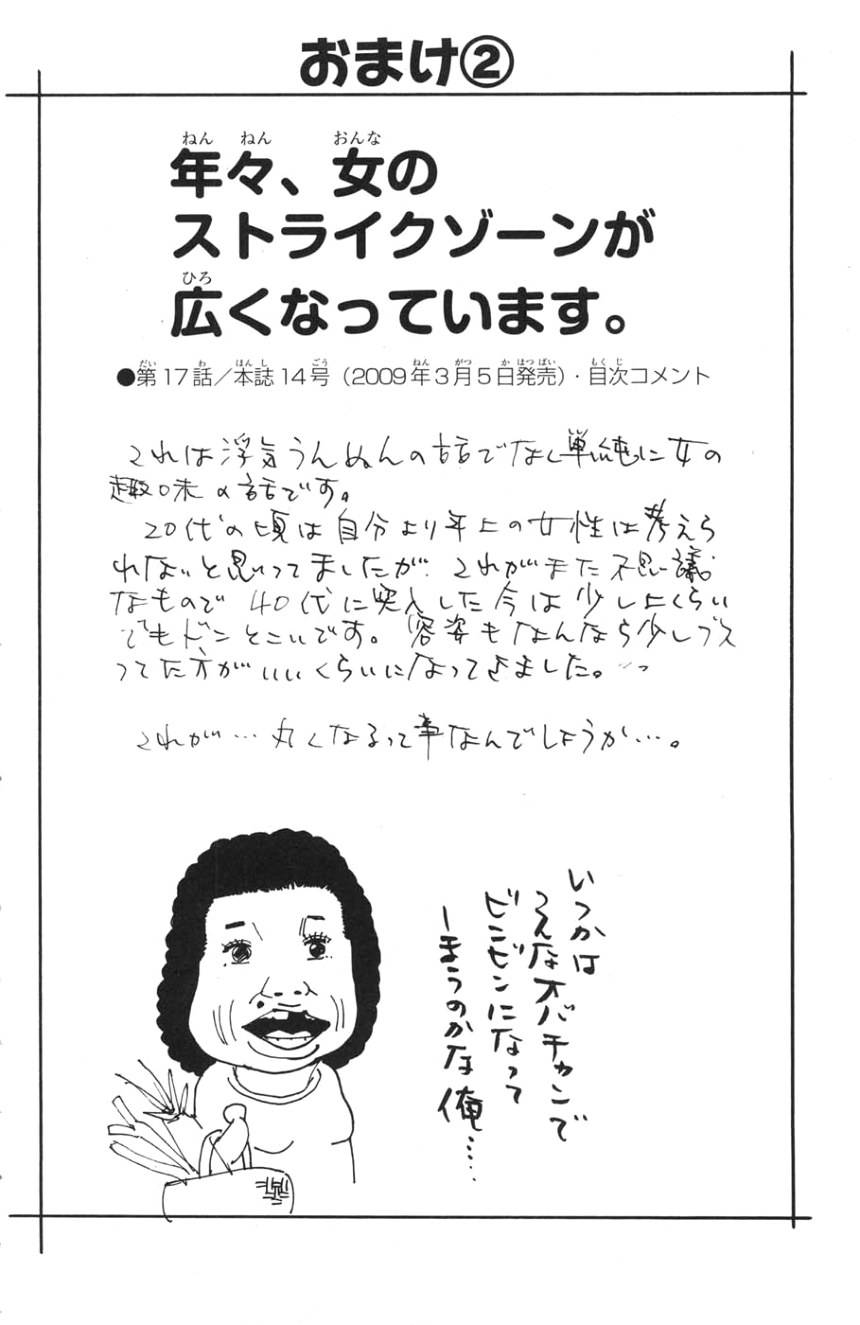 おまけ②
年々、女の
ストライクゾーンが
広くなっています。
●第17話／本誌14号（2009年3月5日発売）・目次コメント
これは浮気うんぬんの話でなく単純に女の
趣味の話です。
20代の頃は自分より年上の女性は考えら
れないと思ってましたが、これがまた不思議
なもので 40代に突入した今は少し上くらい
でもドンとこいです。容姿もなんなら少しブス
ってた方がいいくらいになってきました。
これが…丸くなるって事なんでしょうか…。
いつかは
こんなオバチャンで
ビンビンになって
しまうのかな
俺……